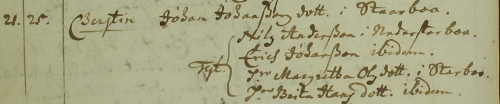 21. 25. Cherstin Johan Johanßons dott. i Starboa.
Nilß Anderßon i Nederstarboa.
Test Erich Johanßon ibidem.
Hr Margretha Olß dott. i Starboa.
Jr Brita Hanß dott. ibidem.